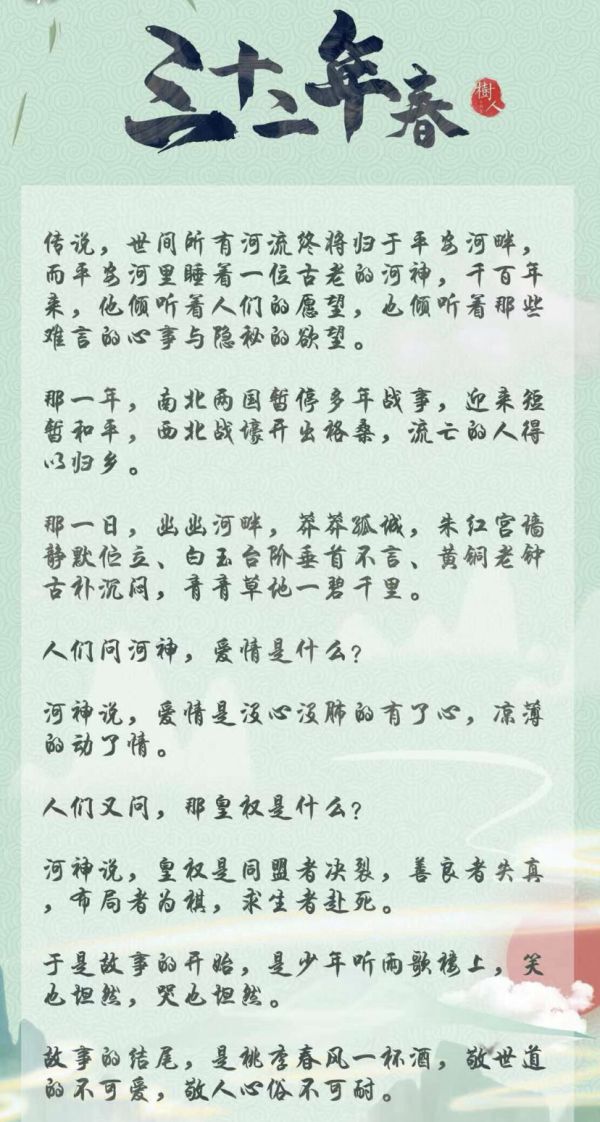 三十二年春
樹人
传说，世间所有河流终将归于平安河畔，
而平安河里睡着一位古老的河神，千百年
来，他倾听着人们的愿望，也倾听着那些
难言的心事与隐秘的欲望。
那一年，南北两国暂停多年战事，迎来短
暂和平，西北战壕开出格桑，流亡的人得
以归乡。
那一日，幽幽河畔，莽莽孤城，朱红宫墙
静默伫立、白玉台阶垂首不言、黄铜老钟
古朴沉闷，青青草地一碧千里。
人们问河神，爱情是什么？
河神说，爱情是没心没肺的有了心，凉薄
的动了情。
人们又问，那皇权是什么？
河神说，皇权是同盟者决裂，善良者失真
，布局者为棋，求生者赴死。
于是故事的开始，是少年听雨歌楼上，笑
也坦然，哭也坦然。
故事的结尾，是桃李春风一杯酒，敬世道
的不可爱，敬人心俗不可耐。